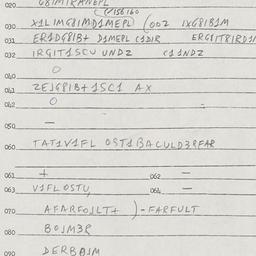 020 G8IMIRANEPL
(√156160
030 X1LIMG8IMD1MEPL (002 IXG8IB1M
031 ER1DG8IBt D1MEPL C1DIR ERGIT8IRD1
032 IRGIT1SCU UNDZ C11NDZ
O
040
041 ZEJG8IBt 1SC1 AX
042 O =
—
050
060 TAT1V1FL OST1BACULD3RFAR
061 + 062 —
063 V1FLOSTU, 064 —
070 AFARFOJLTt ) - FARFULT
080 BOJM3R
090 DERBOJM